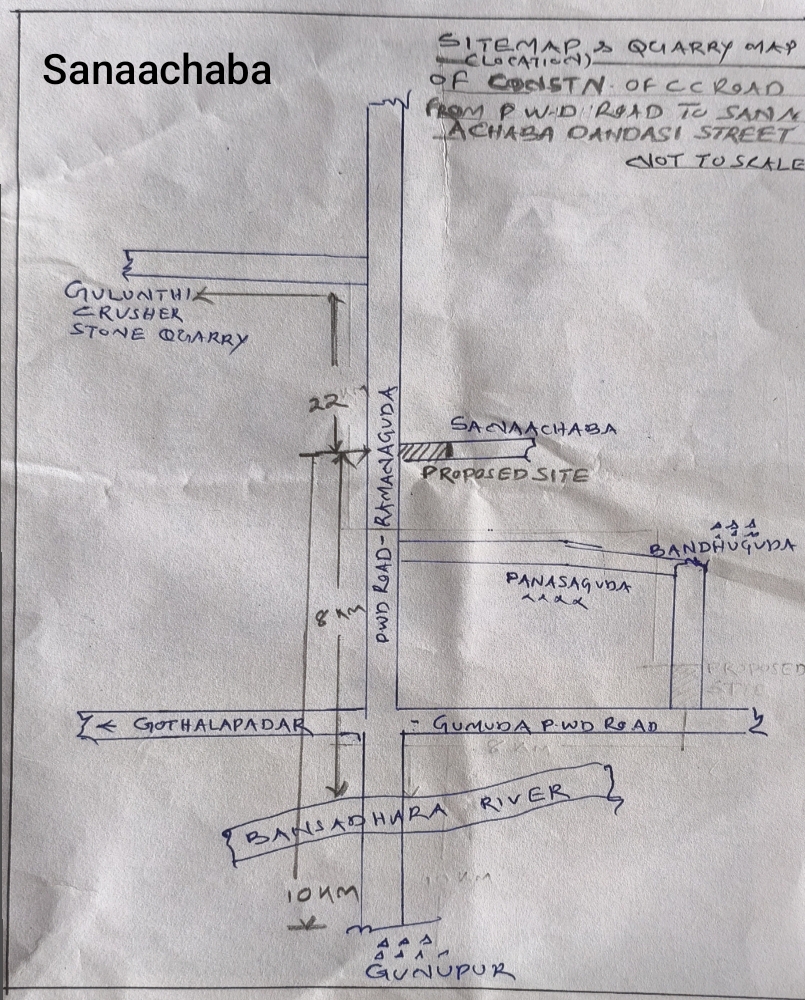 Sanaachaba
SITEMAP & QUARRY MAP
(LOCATION)
OF CONSTN. OF CC ROAD
FROM P.W.D ROAD TO SANN
ACHABA DANDASI STREET
NOT TO SCALE
GULUNTHI
CRUSHER
STONE QUARRY
22
PWD ROAD - RAMANAGUDA
SANAACHABA
PROPOSED SITE
BANDHUGUDA
PANASAGUDA
8 KM
PROPOSED
SITE
GOTHALAPADAR
GUMUDA P.WD ROAD
8 KM
BANSADHARA RIVER
10 KM
10 KM
GUNUPUR